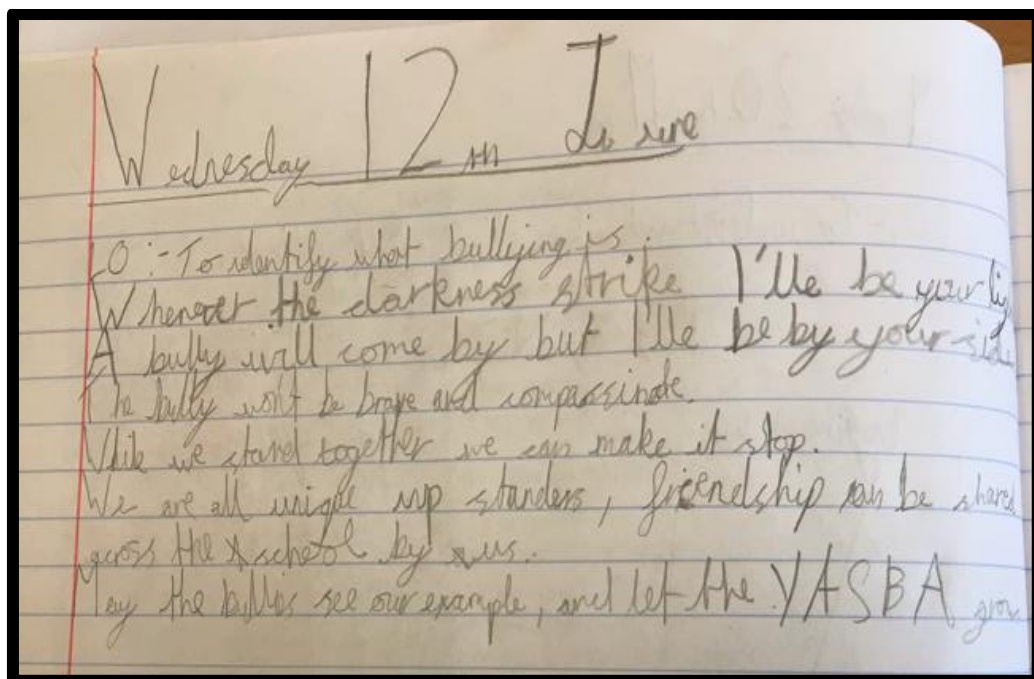 Wednesday 12th June
LO :- To identify what bullying is.
Whenever the darkness strike I'lle be your lig
A bully will come by but I'lle be by your side
The bully won't be brave and compassinate.
While we stand together we can make it stop.
We are all unique up standers, friendship can be shared
across the school by us.
May the bullies see our example, and let the YASBA grow